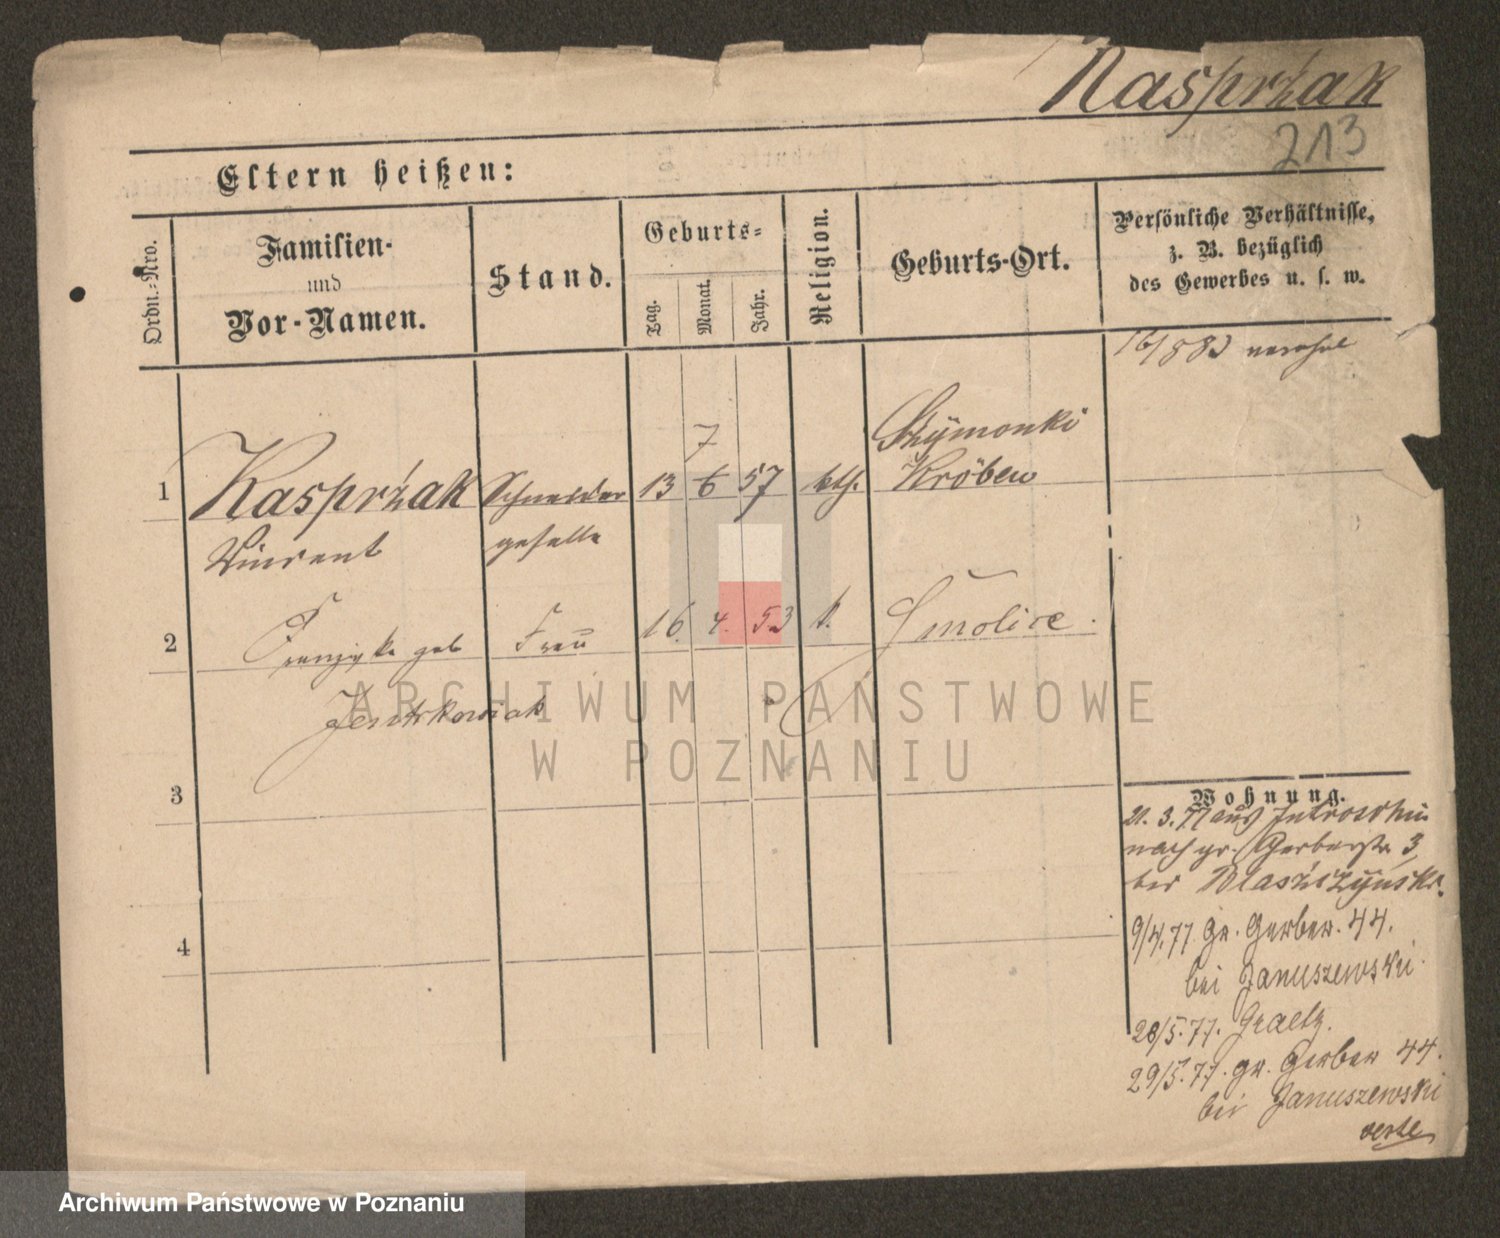 Kasprżak
213
Eltern heißen:
Ordn.-Nro.
Familien-
und
Vor-Namen.
Stand.
Geburts-
Tag.
Monat.
Jahr.
Religion.
Geburts-Ort.
Persönliche Verhältnisse,
z. B. bezüglich
des Gewerbes u. s. w.
7
Szÿmonki
1 Kasprżak Schneider 13 6 57 kth. Kröben
Vincent geselle
2 Franziska geb Frau 16. 4. 53 k. Smolice.
3
4
Wohnung.
21. 3. 77 aus Jutroschin
nach gr. Gerberstr 3
bei Blaszczÿnski.
9/4.77 Gr. Gerber. 44.
bei Januszewski.
28/5.77. Graetz.
29/5.77. gr. Gerber 44.
bei Januszewski
verte
ARCHIWUM PAŃSTWOWE
W POZNANIU
Archiwum Państwowe w Poznaniu